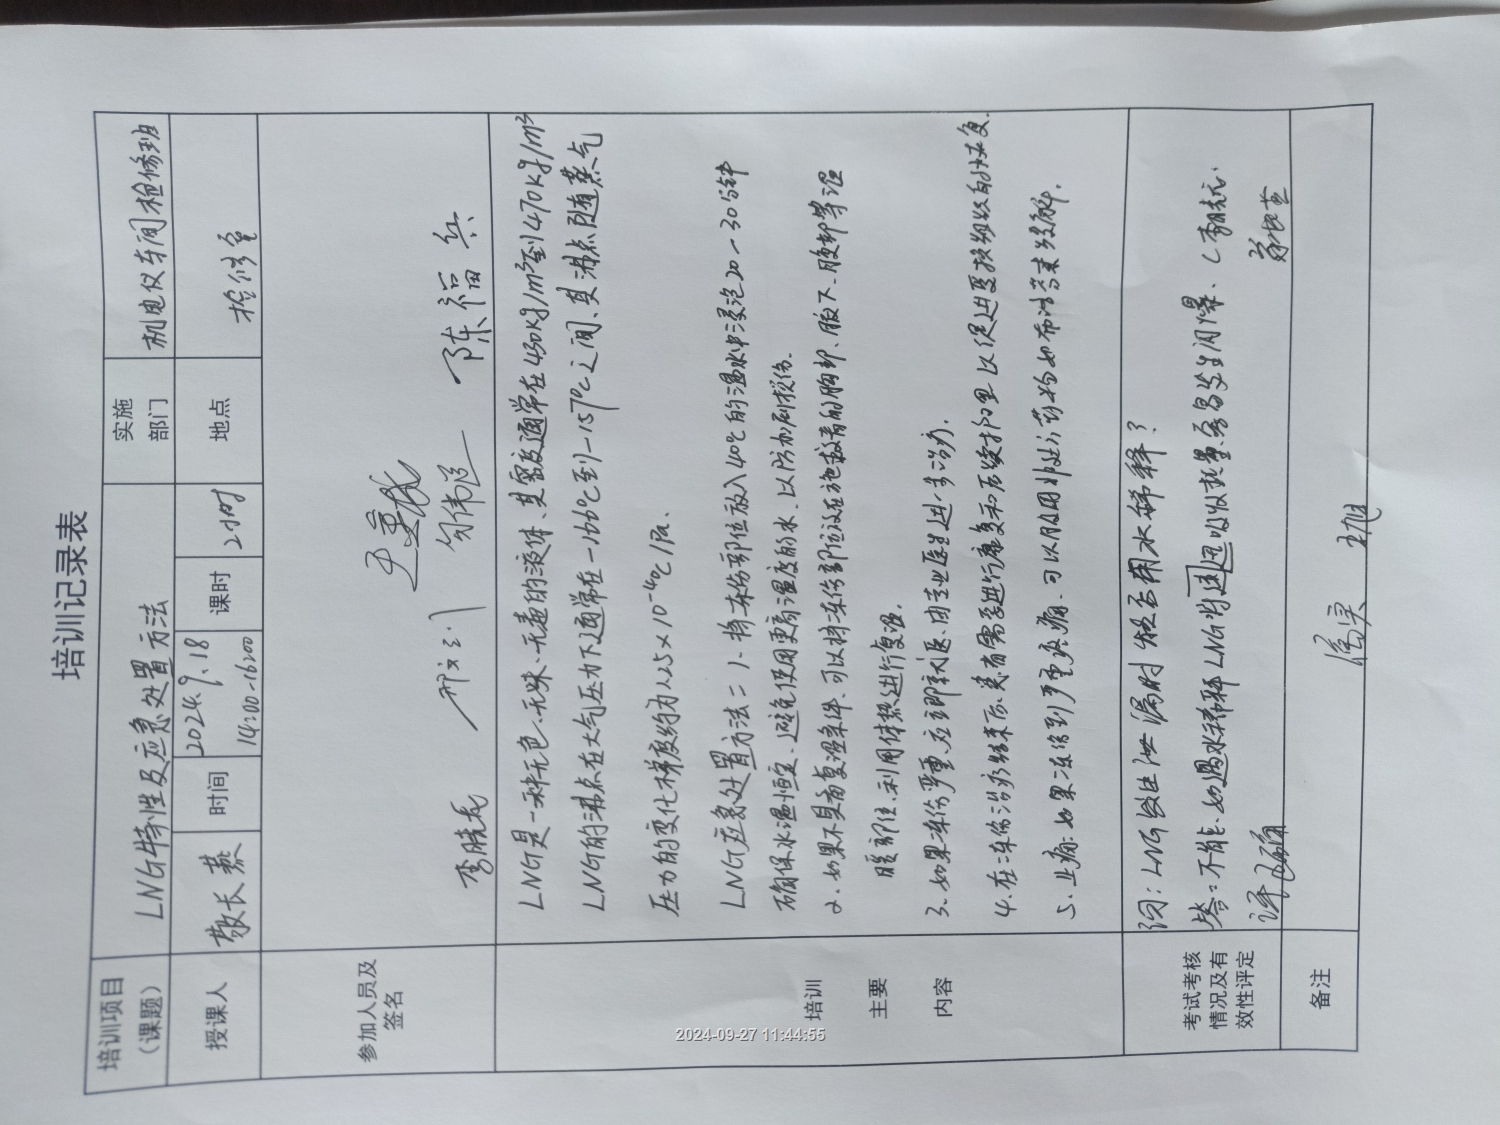 培训记录表
培训项目（课题） LNG特性及应急处置方法 实施部门 机电仪车间检修班
授课人 敬长燕 时间 2024.9.18 14:00-16:00 课时 2小时 地点 检修室
参加人员及签名
李晓龙 陈福兵
培训主要内容
LNG是一种无色、无味、无毒的液体、其密度通常在430kg/m³到470kg/m³
LNG的沸点在大气压力下通常在-166℃到-157℃之间、其沸点随蒸气
压力的变化梯度约为1.25×10⁻⁴℃/Pa.
LNG应急处置方法：1、将冻伤部位放入40℃的温水中浸泡20-30分钟
确保水温恒定、避免使用更高温度的水、以防加剧损伤.
2、如果不具备复温条件、可以将冻伤部位放在施救者的胸部、腋下、腹部等温
暖部位、利用体热进行复温.
3、如果冻伤严重、应立即就医、由专业医生进一步治疗.
4、在冻伤治疗结束后、患者需要进行康复和后续护理以促进受损组织的恢复.
5、止痛：如果冻伤到严重疼痛、可以服用非处方药物如布洛芬来缓解.
考试考核情况及有效性评定
问：LNG发生泄漏时 能否用水稀释？
答：不能、如遇水稀释LNG将迅速吸收热量容易发生闪爆、（李晓龙、
备注
2024-09-27 11:44:55